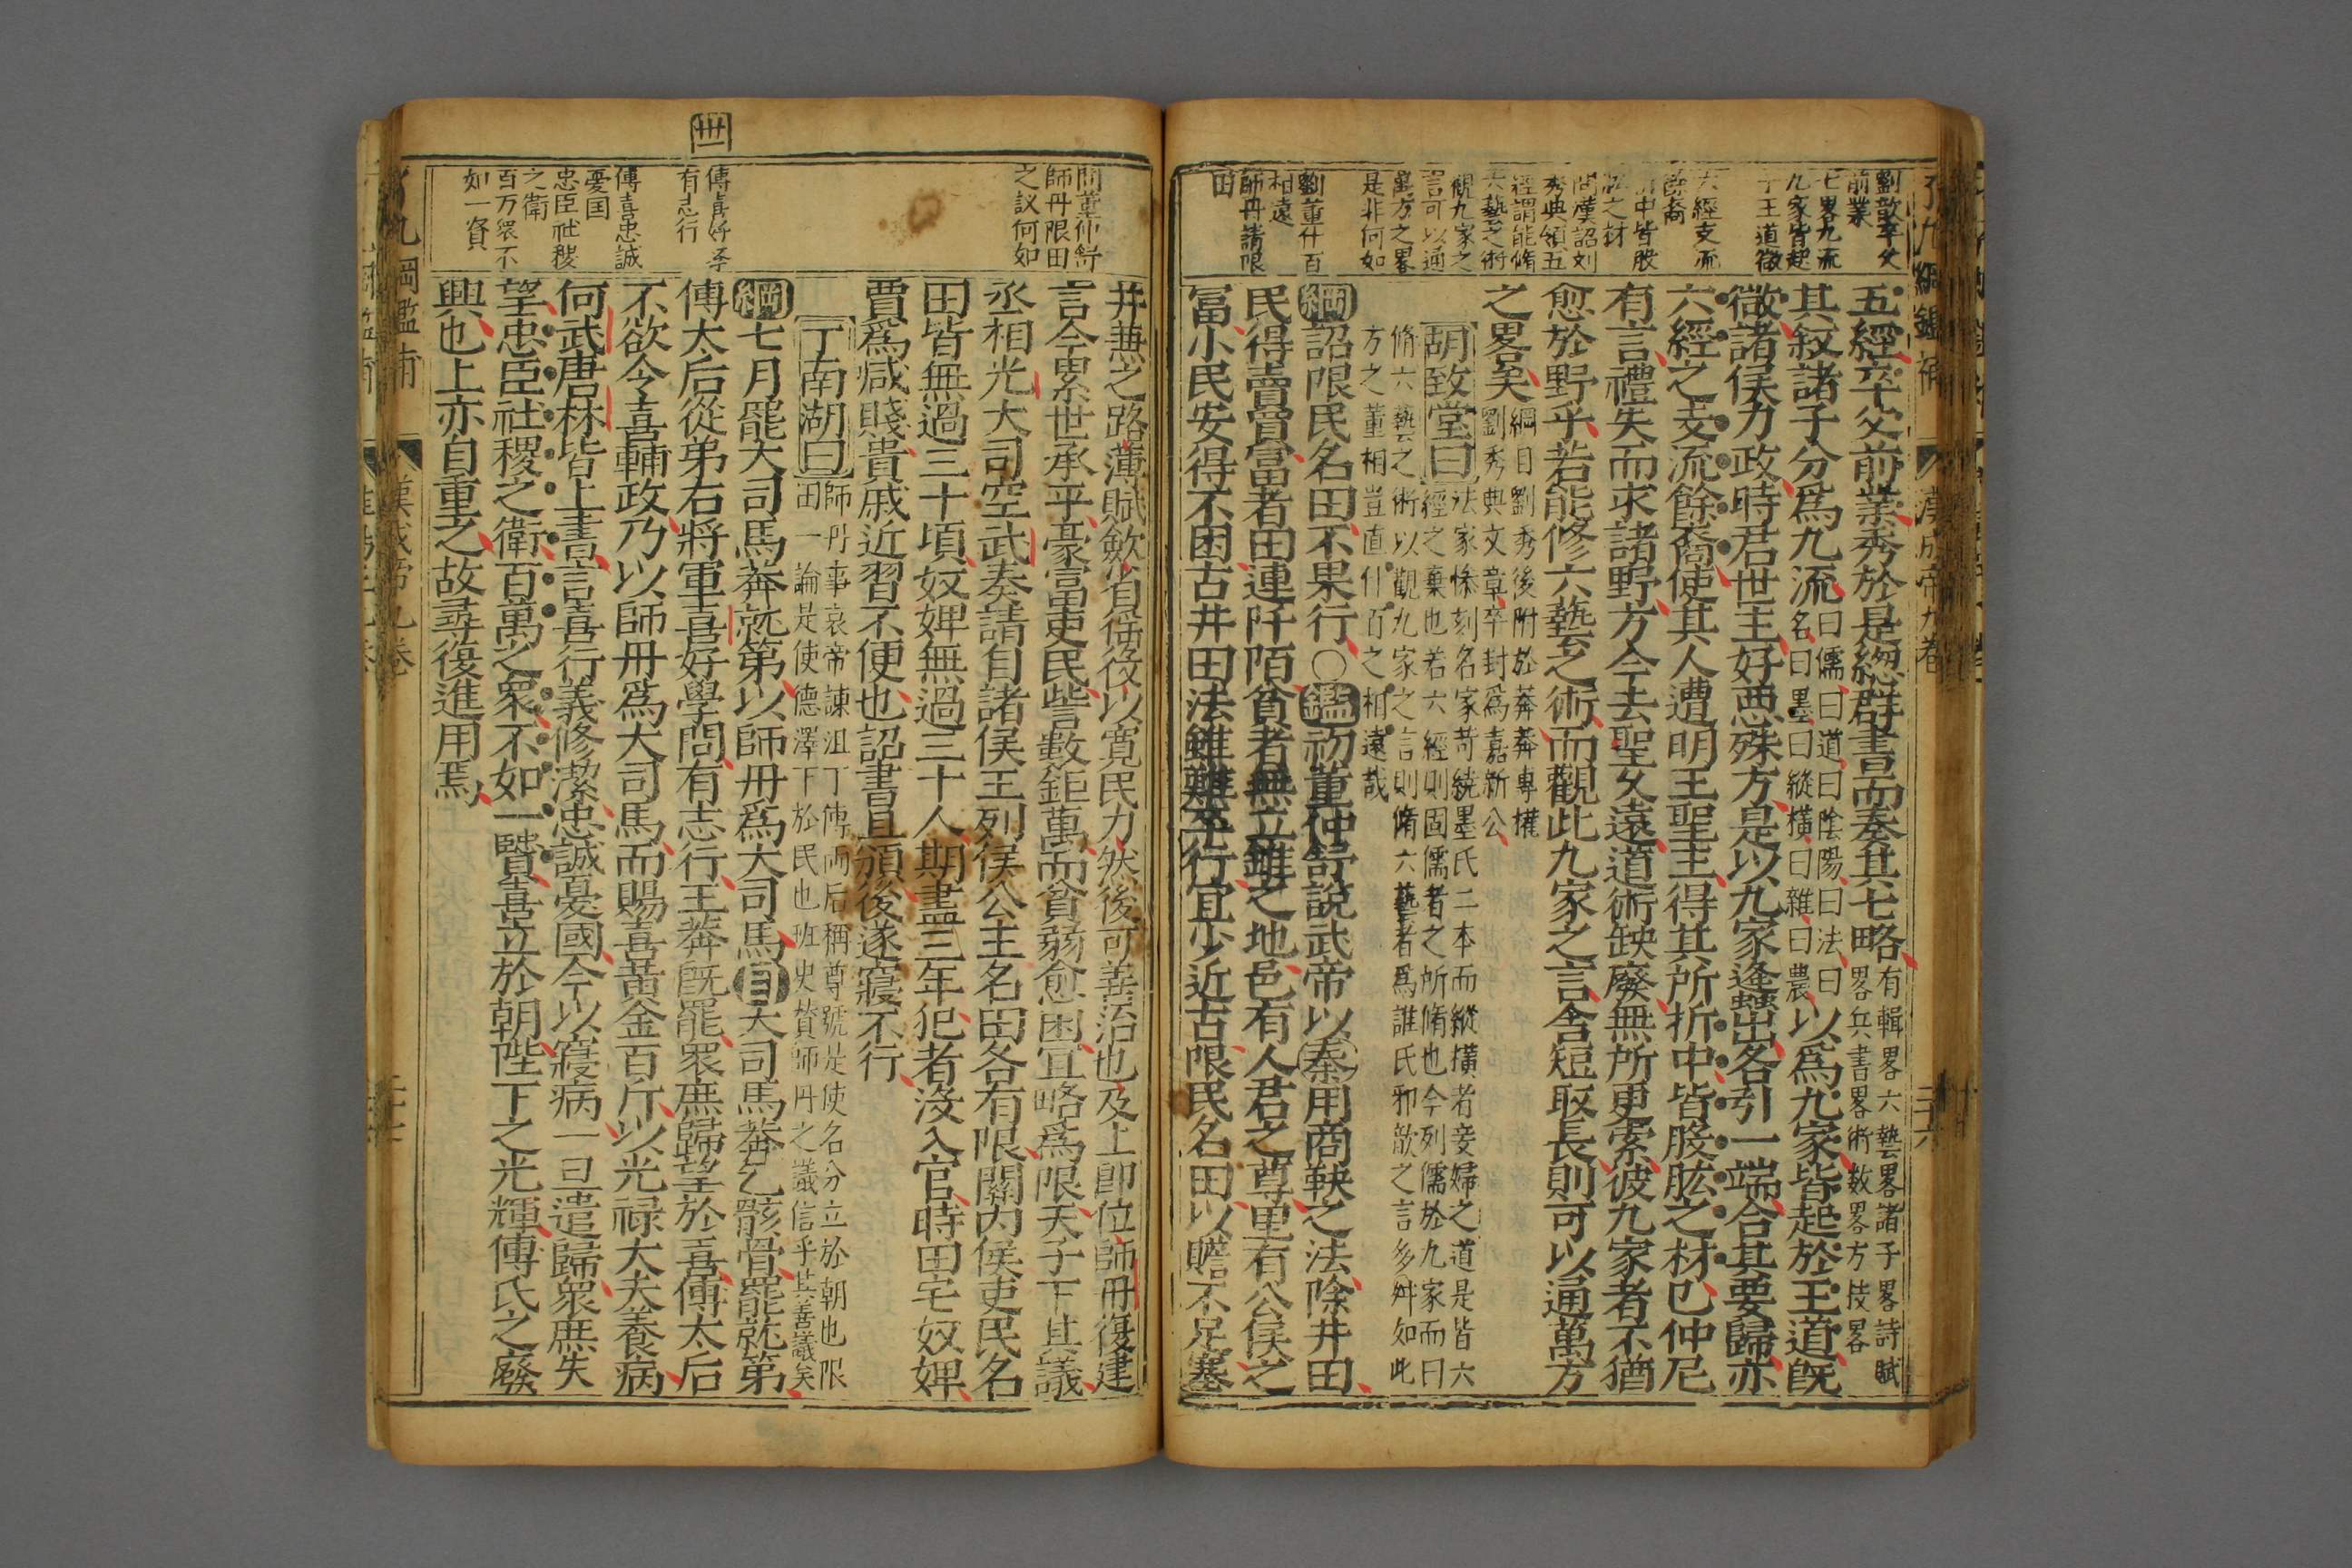 劉歆卒父
前業
七畧九流
九家皆起
于王道微
六經支流
餘裔
折中皆股
肱之材
問漢詔刘
秀典領五
經謂能脩
六藝之術
觀九家之
言可以通
萬方之畧
是非何如
劉董什百
相遠
師丹請限
田
五經卒父前業秀於是緫群書而奏其七略有輯畧六藝畧諸子畧詩賦
畧兵書畧術数畧方技畧
其叙諸子分爲九流曰儒曰道曰陰陽曰法曰
名曰墨曰縱橫曰雜曰農以爲九家皆起於王道旣
微諸侯力政時君世主好惡殊方是以九家逢蠭出各引一端合其要歸亦
六經之支流餘裔使其人遭明王聖主得其所折中皆股肱之材已仲尼
有言禮失而求諸野方今去聖久遠道術缺廢無所更索彼九家者不猶
愈於野乎若能修六藝之術而觀此九家之言舍短取長則可以通萬方
之畧矣綱目劉秀後附於莽莽專權
劉秀典文章卒封爲嘉新公
胡致堂曰法家慘刻名家苛繞墨氏二本而縱橫者妾婦之道是皆六
經之棄也若六經則固儒者之所脩也今列儒於九家而曰
脩六藝之術以觀九家之言則脩六藝者爲誰氏邪歆之言多舛如此
方之董相豈直什百之相遠哉
綱詔限民名田不果行○鑑初董仲舒說武帝以秦用商鞅之法除井田
民得賣買富者田連阡陌貧者無立錐之地邑有人君之尊里有公侯之
富小民安得不困古井田法雖難卒行宜少近古限民名田以贍不足塞
了凡綱鑑補 漢成帝九卷 二十六
問董仲舒
師丹限田
之議何如
傅喜好學
有志行
傅喜忠誠
憂国
忠臣社稷
之衛
百万衆不
如一賢
井兼之路薄賦斂省徭役以寛民力然後可善治也及上即位師丹復建
言今累世承平豪富吏民訾數鉅萬而貧弱愈困宜略爲限天子下其議
丞相光大司空武奏請自諸侯王列侯公主名田各有限關内侯吏民名
田皆無過三十頃奴婢無過三十人期盡三年犯者沒入官時田宅奴婢
賈爲减賤貴戚近習不便也詔書且須後遂寢不行
丁南湖曰師丹事哀帝諫沮丁傅両后稱尊號是使名分立於朝也限
田一論是使德澤下於民也班史賛師丹之議信乎其善議矣
綱七月罷大司馬莽就第以師丹爲大司馬目大司馬莽乞骸骨罷就第
傅太后從弟右將軍喜好學問有志行王莽旣罷衆庶歸望於喜傅太后
不欲令喜輔政乃以師丹爲大司馬而賜喜黃金百斤以光禄大夫養病
何武唐林皆上書言喜行義修潔忠誠憂國今以寢病一旦遣歸衆庶失
望忠臣社稷之衛百萬之衆不如一賢喜立於朝陛下之光輝傅氏之廢
興也上亦自重之故尋復進用焉
了凡綱鑑補 漢成帝九卷 二十七